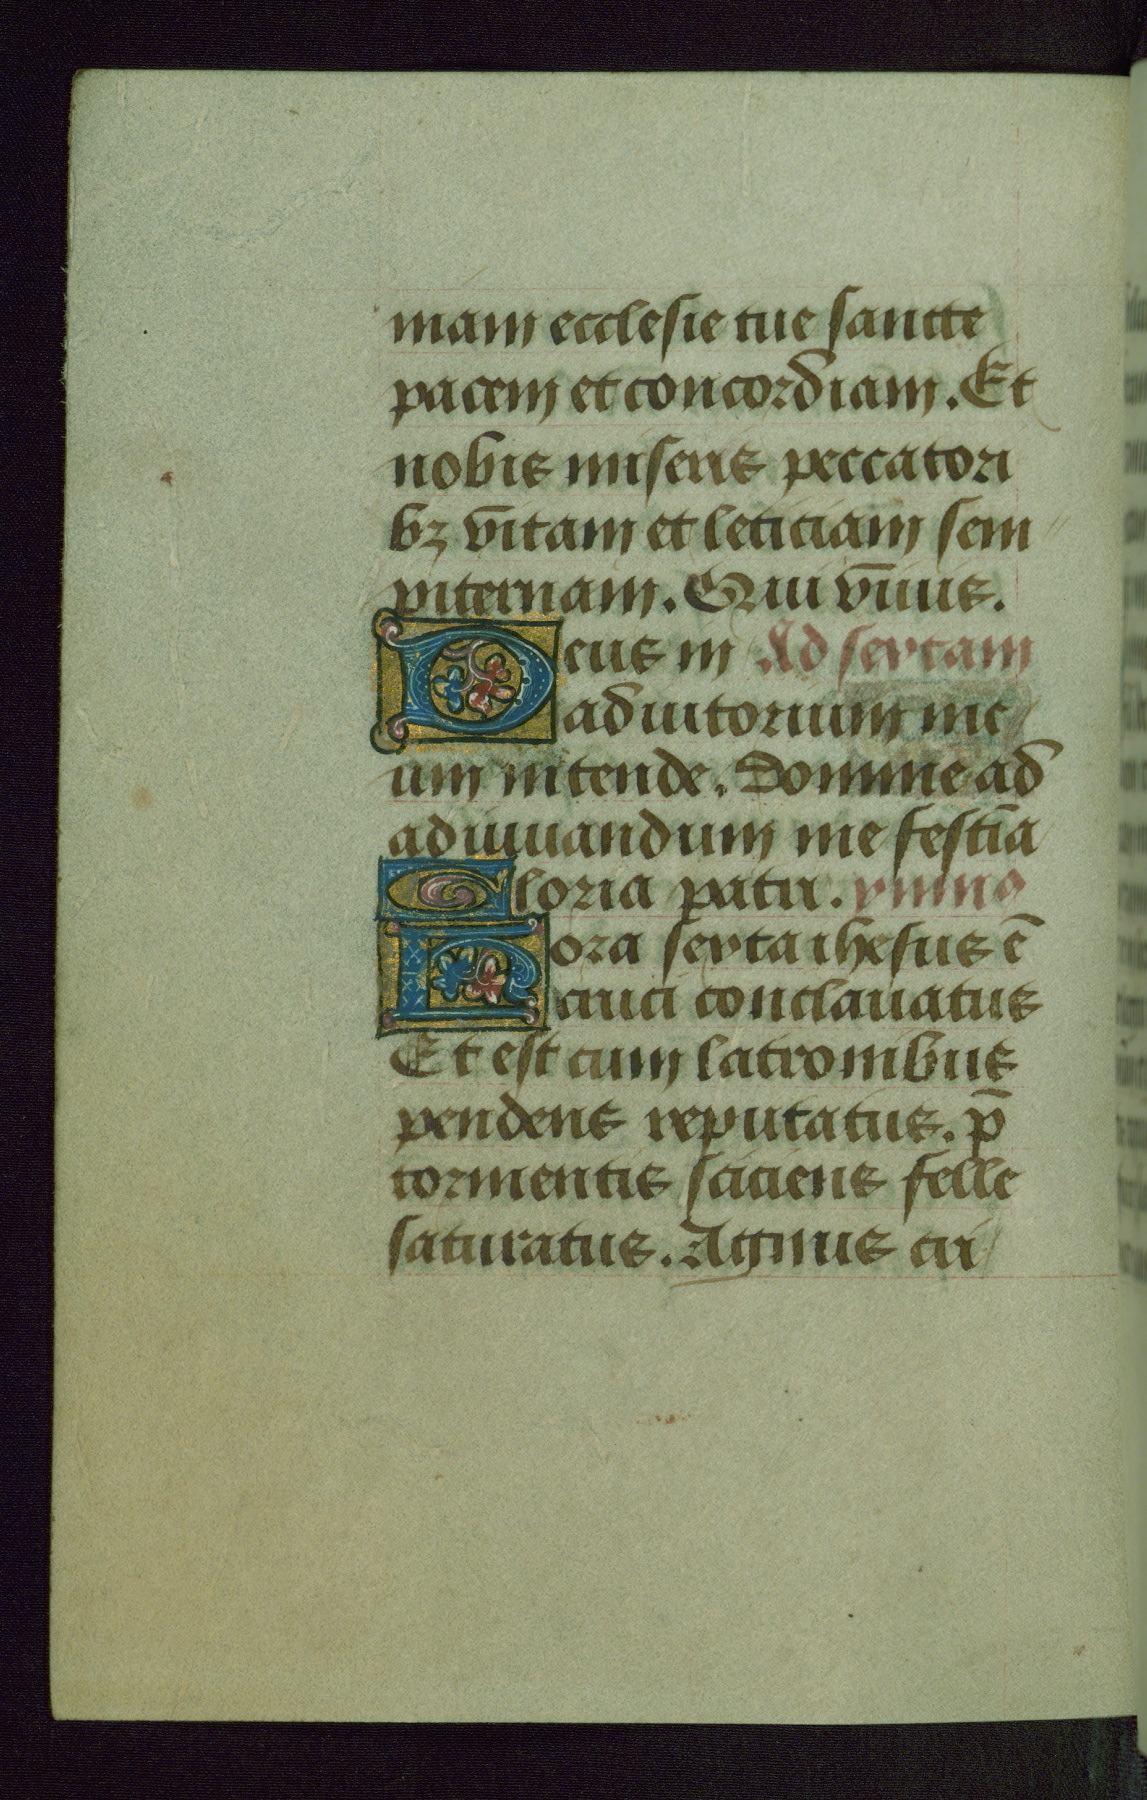 mam ecclesie tue sancte
pacem et concordiam. Et
nobis miseris peccatori
bꝫ vitam et leticiam sem
piternam. Qui viuis.
Deus in Ad sextam
adiutorium me
um intende. Domine ad
adiuuandum me festīa
Gloria patri. ymno
Hora sexta ihesus ē
cruci conclauatus
Et est cum latronibus
pendens reputatus. p̄
tormentis sciciens felle
saturatus. Agnus cri